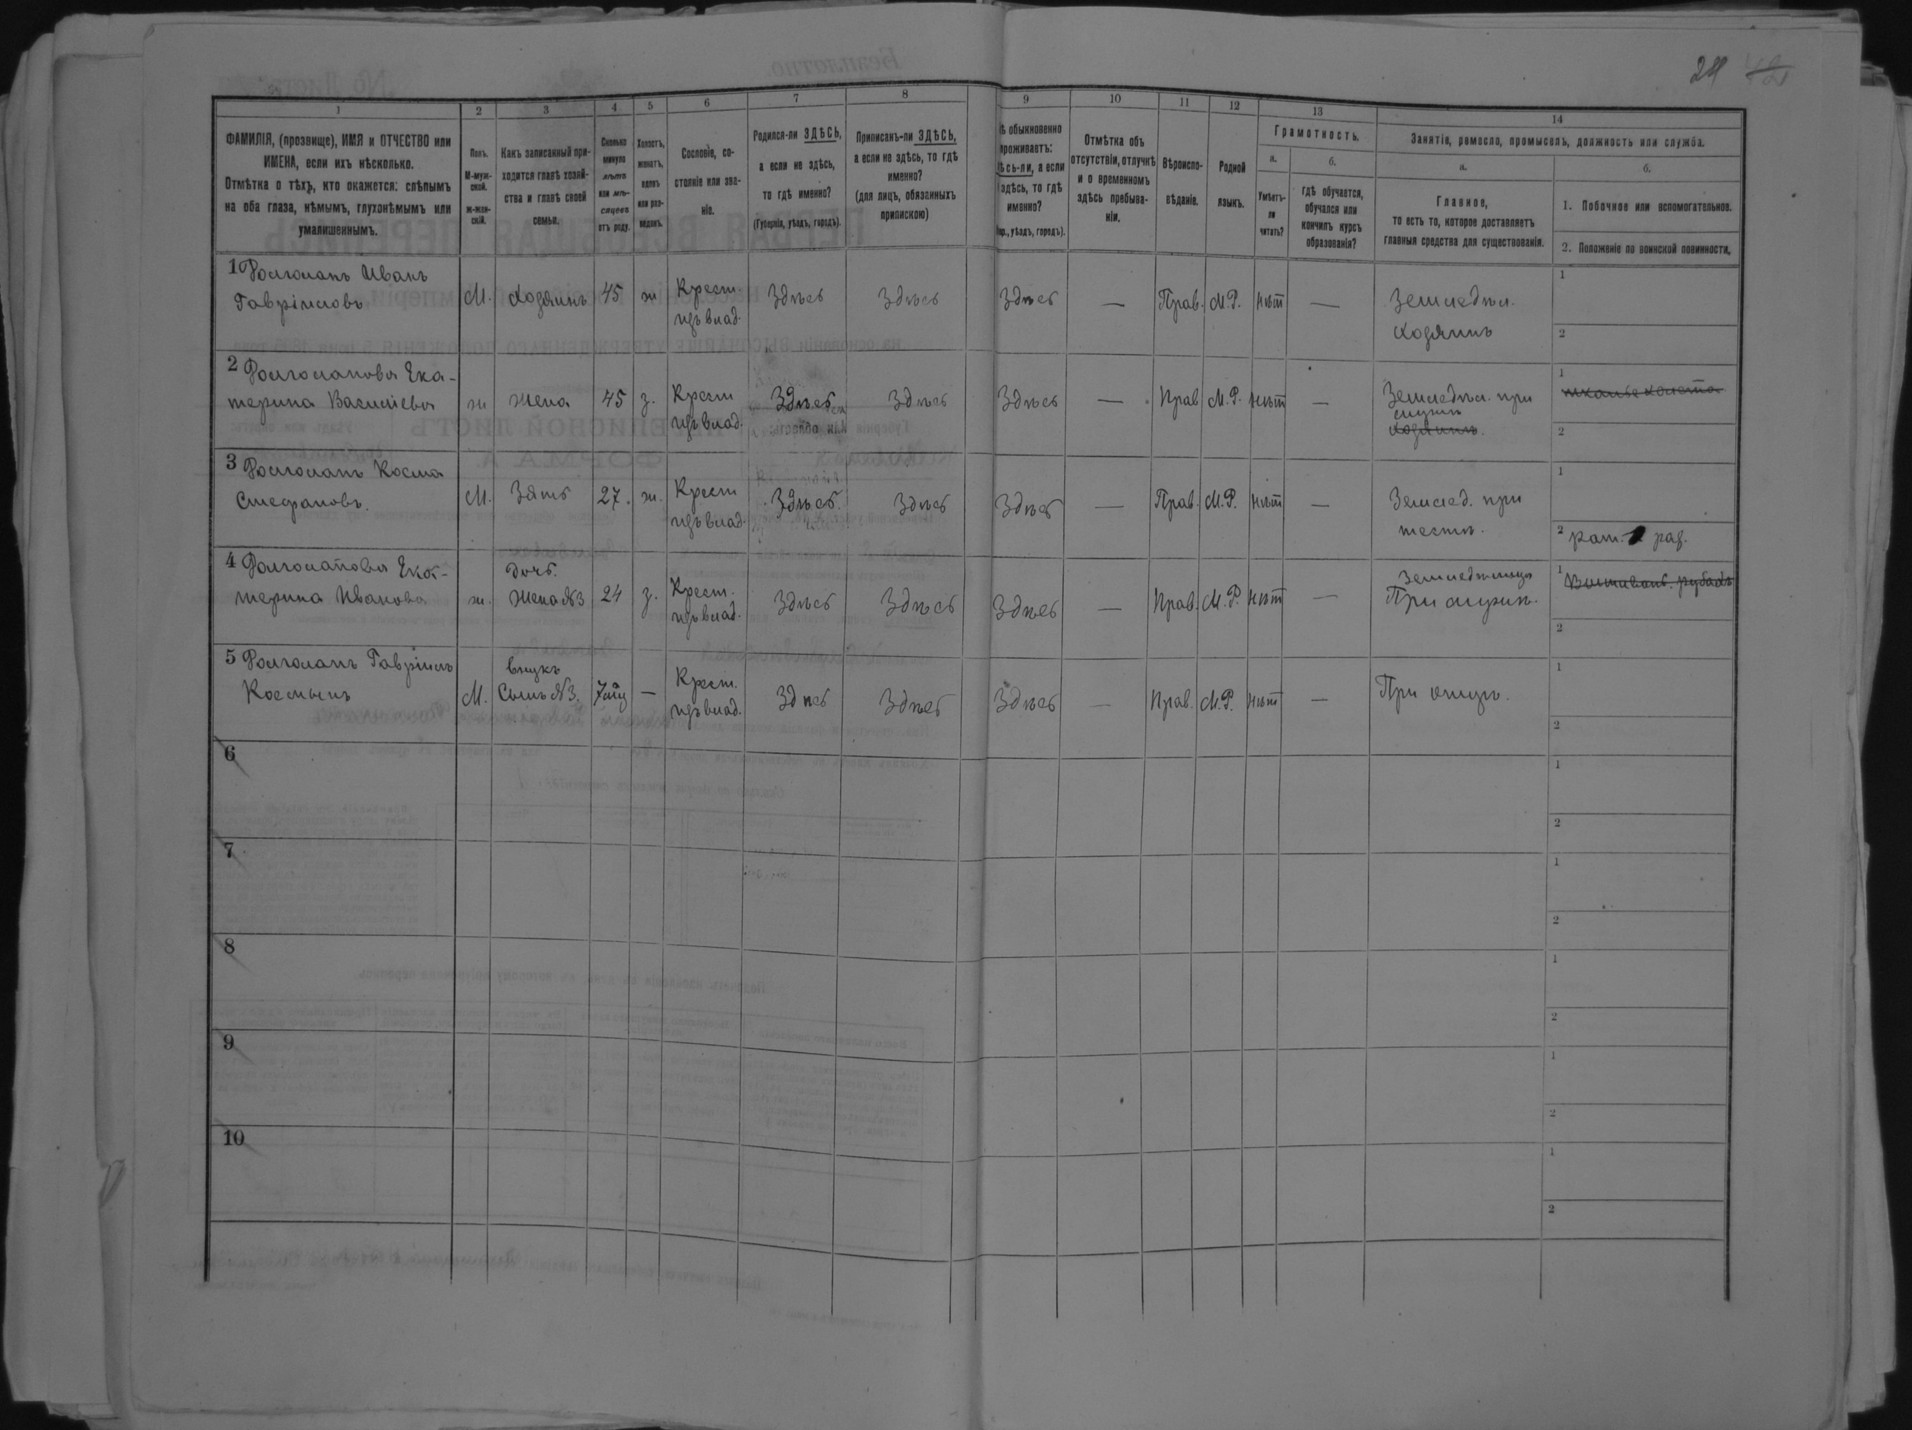 24
1
2
3
4
5
6
7
8
9
10
11
12
13
14
ФАМИЛІЯ, (прозвище), ИМЯ и ОТЧЕСТВО или
ИМЕНА, если ихъ нѣсколько.
Отмѣтка о тѣхъ, кто окажется: слѣпымъ
на оба глаза, нѣмымъ, глухонѣмымъ или
умалишеннымъ.
Полъ.
М-муж-
ской.
ж-жен-
скій.
Какъ записанный при-
ходится главѣ хозяй-
ства и главѣ своей
семьи.
Сколько
минуло
лѣтъ
или мѣ-
сяцевъ
отъ роду.
Холостъ,
женатъ,
вдовъ
или раз-
веденъ.
Сословіе, со-
стояніе или зва-
ніе.
Родился-ли ЗДѢСЬ,
а если не здѣсь,
то гдѣ именно?
(Губернія, уѣздъ, городъ).
Приписанъ-ли ЗДѢСЬ,
а если не здѣсь, то гдѣ
именно?
(для лицъ, обязанныхъ
припискою)
ѣ обыкновенно
проживаетъ:
ѣсь-ли, а если
здѣсь, то гдѣ
именно?
уѣздъ, городъ).
Отмѣтка объ
отсутствіи, отлучкѣ
и о временномъ
здѣсь пребыва-
ніи.
Вѣроиспо-
вѣданіе.
Родной
языкъ.
Грамотность.
а.
б.
Умѣетъ-
ли
читать?
гдѣ обучается,
обучался или
кончилъ курсъ
образованія?
Занятіе, ремесло, промыселъ, должность или служба.
а.
б.
Главное,
то есть то, которое доставляетъ
главныя средства для существованія.
1. Побочное или вспомогательное.
2. Положеніе по воинской повинности.
1
Иванъ
Гавріиловъ
М.
Хозяинъ
45
ж
Крест.
изъ влад.
Здѣсь
Здѣсь
Здѣсь
—
Прав.
М.Р.
нѣт
—
Земледѣл.
Хозяинъ
1
2
2
Ека-
терина Васильева
ж
жена
45
з.
Крест
изъ влад.
Здѣсь
Здѣсь
Здѣсь
—
Прав
М.Р.
нѣт
—
Земледѣл. при
мужѣ
хозяинъ.
1
2
3
Косма
Стефановъ.
М.
Зять
27.
ж.
Крест
изъ влад.
Здѣсь
Здѣсь
Здѣсь
—
Прав.
М.Р.
нѣт
—
Землед. при
тестѣ.
1
2 рат. 1 раз.
4
Ека-
терина Иванова
ж.
дочь.
Жена №3
24
з.
Крест.
изъ влад.
Здѣсь
Здѣсь
Здѣсь
—
Прав.
М.Р.
нѣт
—
При мужѣ.
1
2
5
Гавріилъ
Косминъ
М.
внукъ
Сынъ №3.
—
Крест.
изъ влад.
Здѣсь
Здѣсь
Здѣсь
—
Прав.
М.Р.
нѣт
—
При отцѣ.
1
2
6
1
2
7
1
2
8
1
2
9
1
2
10
1
2